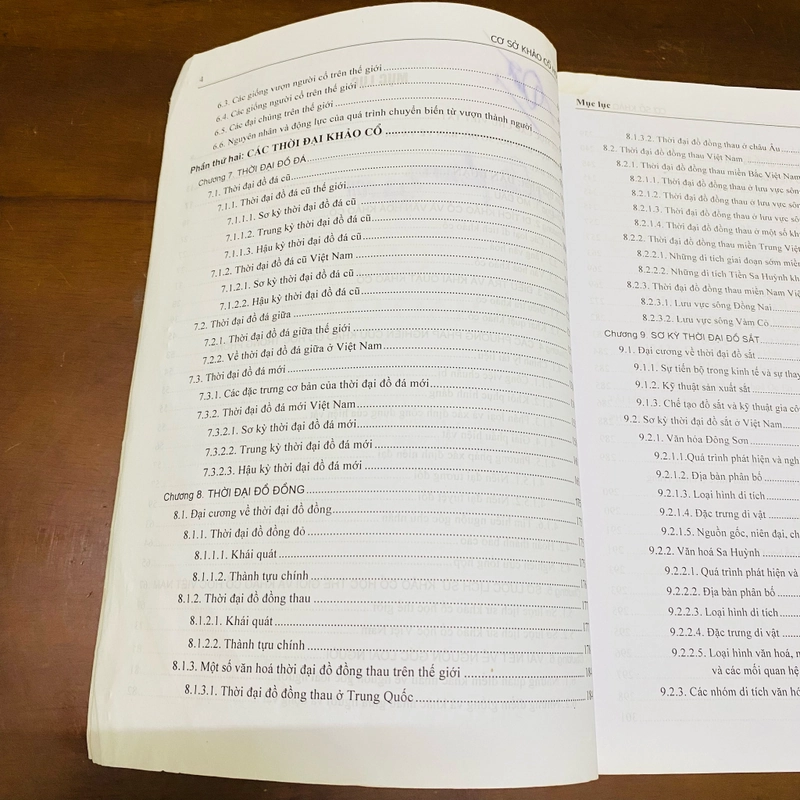 4
CƠ SỞ KHẢO CỔ
6.3. Các giống vượn người cổ trên thế giới
6.4. Các giống người cổ trên thế giới
6.5. Các đại chủng trên thế giới
6.6. Nguyên nhân và động lực của quá trình chuyển biến từ vượn thành người
Phần thứ hai: CÁC THỜI ĐẠI KHẢO CỔ
Chương 7. THỜI ĐẠI ĐỒ ĐÁ
7.1. Thời đại đồ đá cũ
7.1.1. Thời đại đồ đá cũ thế giới
7.1.1.1. Sơ kỳ thời đại đồ đá cũ
7.1.1.2. Trung kỳ thời đại đồ đá cũ
7.1.1.3. Hậu kỳ thời đại đồ đá cũ
7.1.2. Thời đại đồ đá cũ Việt Nam
7.1.2.1. Sơ kỳ thời đại đồ đá cũ
7.1.2.2. Hậu kỳ thời đại đồ đá cũ
7.2. Thời đại đồ đá giữa
7.2.1. Thời đại đồ đá giữa thế giới
7.2.2. Về thời đại đồ đá giữa ở Việt Nam
7.3. Thời đại đồ đá mới
7.3.1. Các đặc trưng cơ bản của thời đại đồ đá mới
7.3.2. Thời đại đồ đá mới Việt Nam
7.3.2.1. Sơ kỳ thời đại đồ đá mới
7.3.2.2. Trung kỳ thời đại đồ đá mới
7.3.2.3. Hậu kỳ thời đại đồ đá mới
Chương 8. THỜI ĐẠI ĐỒ ĐỒNG
8.1. Đại cương về thời đại đồ đồng
8.1.1. Thời đại đồ đồng đỏ
8.1.1.1. Khái quát
8.1.1.2. Thành tựu chính
8.1.2. Thời đại đồ đồng thau
8.1.2.1. Khái quát
8.1.2.2. Thành tựu chính
8.1.3. Một số văn hoá thời đại đồ đồng thau trên thế giới 184
8.1.3.1. Thời đại đồ đồng thau ở Trung Quốc 184
Mục lục
8.1.3.2. Thời đại đồ đồng thau ở châu Âu
8.2. Thời đại đồ đồng thau Việt Nam
8.2.1. Thời đại đồ đồng thau miền Bắc Việt Nam
8.2.1.1. Thời đại đồ đồng thau ở lưu vực sông
8.2.1.2. Thời đại đồ đồng thau ở lưu vực sông
8.2.1.3. Thời đại đồ đồng thau ở lưu vực sông
8.2.1.4. Thời đại đồ đồng thau ở một số kh
8.2.2. Thời đại đồ đồng thau miền Trung Việt
8.2.2.1. Những di tích giai đoạn sớm miền
8.2.2.2. Những di tích Tiền Sa Huỳnh kh
8.2.3. Thời đại đồ đồng thau miền Nam Việ
8.2.3.1. Lưu vực sông Đồng Nai
8.2.3.2. Lưu vực sông Vàm Cỏ
Chương 9. SƠ KỲ THỜI ĐẠI ĐỒ SẮT
9.1. Đại cương về thời đại đồ sắt
9.1.1. Sự tiến bộ trong kinh tế và sự thay
9.1.2. Kỹ thuật sản xuất sắt
9.1.3. Chế tạo đồ sắt và kỹ thuật gia cô
9.2. Sơ kỳ thời đại đồ sắt ở Việt Nam
9.2.1. Văn hóa Đông Sơn
9.2.1.1.Quá trình phát hiện và ngh
9.2.1.2. Địa bàn phân bố
9.2.1.3. Loại hình di tích
9.2.1.4. Đặc trưng di vật
9.2.1.5. Nguồn gốc, niên đại, ch
9.2.2. Văn hoá Sa Huỳnh
9.2.2.1. Quá trình phát hiện và
9.2.2.2. Địa bàn phân bố
9.2.2.3. Loại hình di tích
9.2.2.4. Đặc trưng di vật
9.2.2.5. Loại hình văn hoá, n
và các mối quan hệ
9.2.3. Các nhóm di tích văn hó